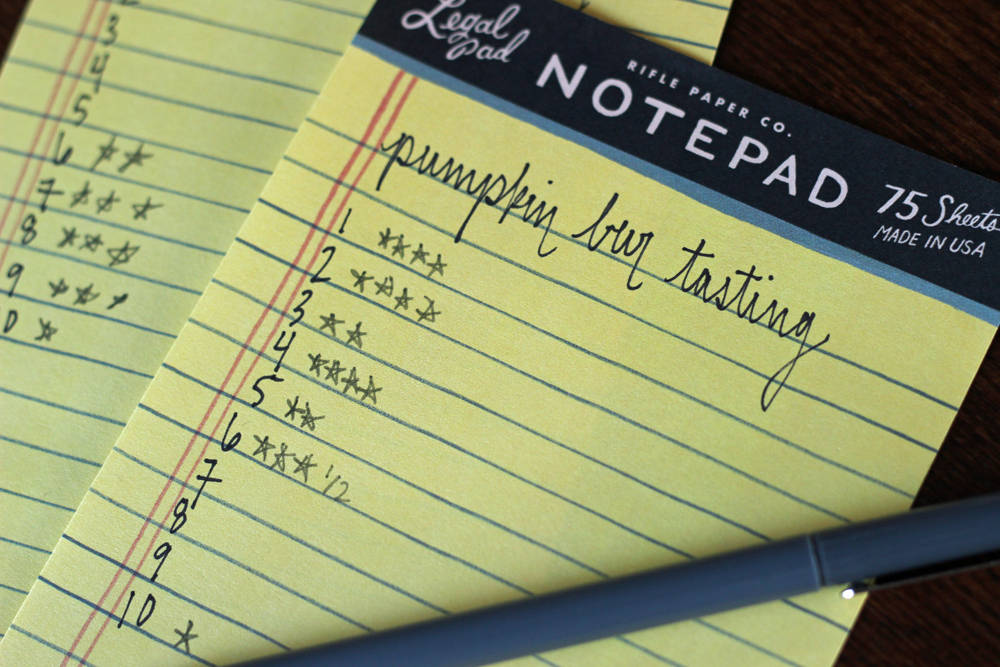 Legal Pad
RIFLE PAPER CO.
NOTEPAD
75 Sheets
MADE IN USA
pumpkin beer tasting
1 ★★★★
2 ★★★★
3 ★★
4 ★★★★
5 ★★
6 ★★★ 1/2
7
8
9
10 ★
3
4
5
6 ★★
7 ★★★
8 ★★★
9 ★★★
10 ★